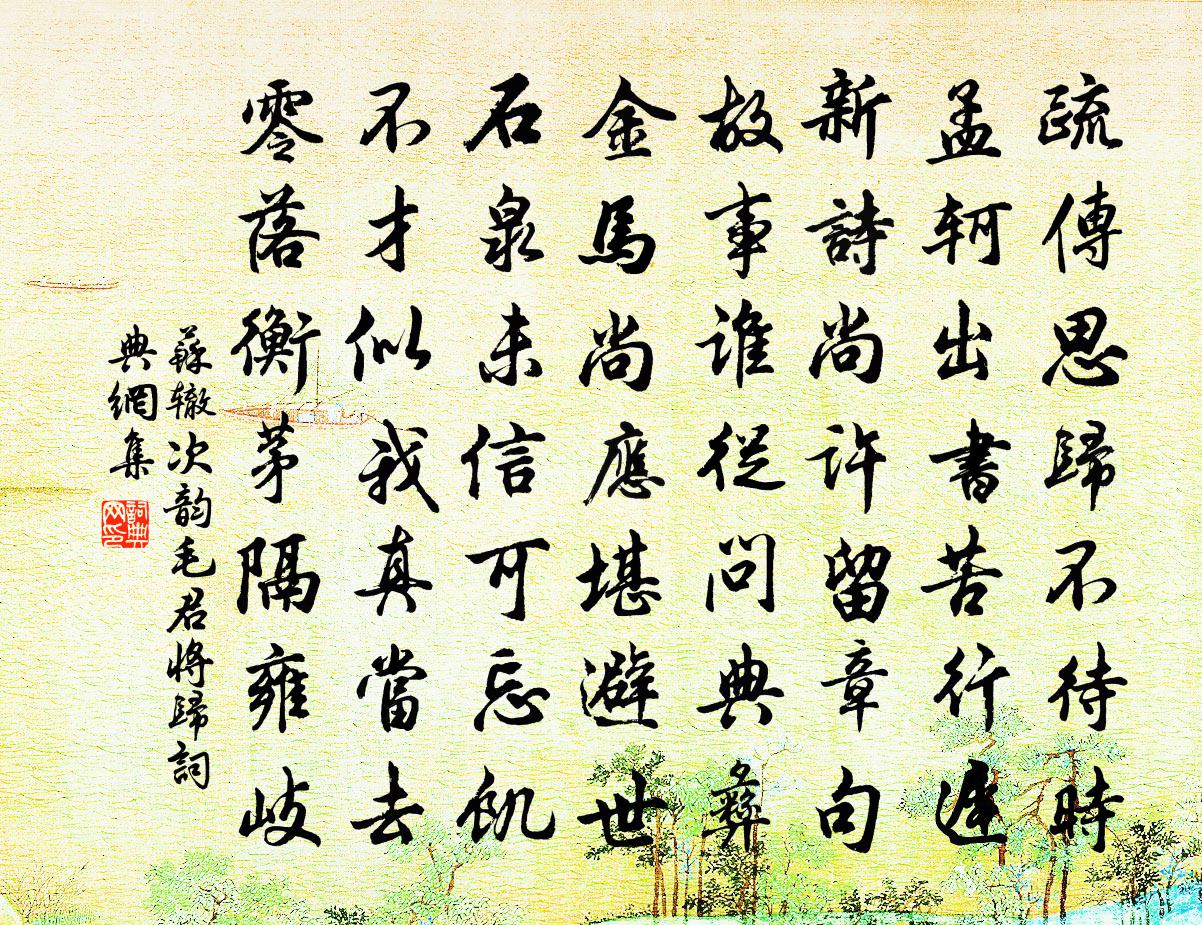 疏傳思歸不待時
孟軻出書苦行遲
新詩尚許留章句
故事誰從問典彝
金馬尚應堪避世
石泉未信可忘飢
不才似我真當去
零落衡茅隔雍岐
蘇轍次韵毛君將歸詞
典網集
詞典
网